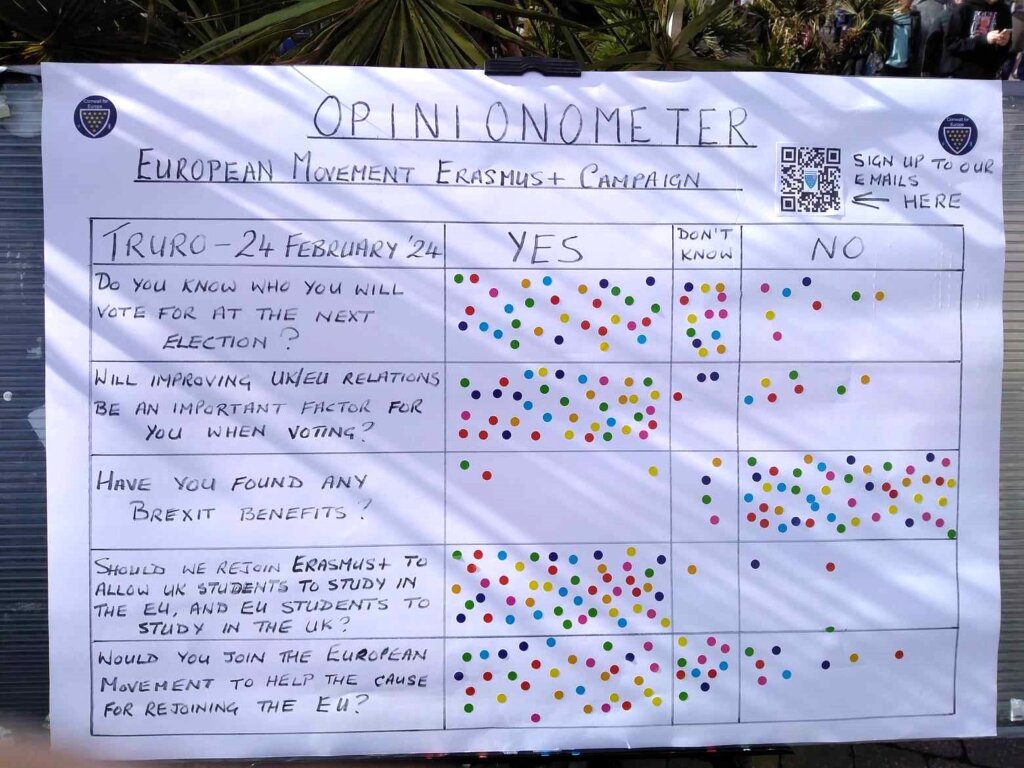 Cornwall for
Europe
OPINIONOMETER
Cornwall for
Europe
EUROPEAN MOVEMENT ERASMUS+ CAMPAIGN
SIGN UP TO OUR
EMAILS
← HERE
TRURO - 24 FEBRUARY '24
YES
DON'T
KNOW
NO
DO YOU KNOW WHO YOU WILL
VOTE FOR AT THE NEXT
ELECTION?
WILL IMPROVING UK/EU RELATIONS
BE AN IMPORTANT FACTOR FOR
YOU WHEN VOTING?
HAVE YOU FOUND ANY
BREXIT BENEFITS?
SHOULD WE REJOIN ERASMUS+ TO
ALLOW UK STUDENTS TO STUDY IN
THE EU, AND EU STUDENTS TO
STUDY IN THE UK?
WOULD YOU JOIN THE EUROPEAN
MOVEMENT TO HELP THE CAUSE
FOR REJOINING THE EU?